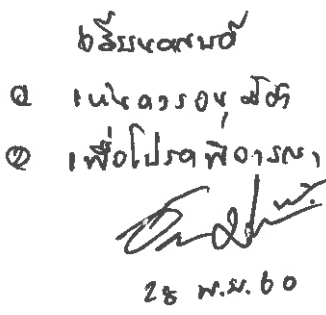 เรียนคณบดี
① เห็นควรอนุมัติ
② เพื่อโปรดพิจารณา
28 พ.ย. 60